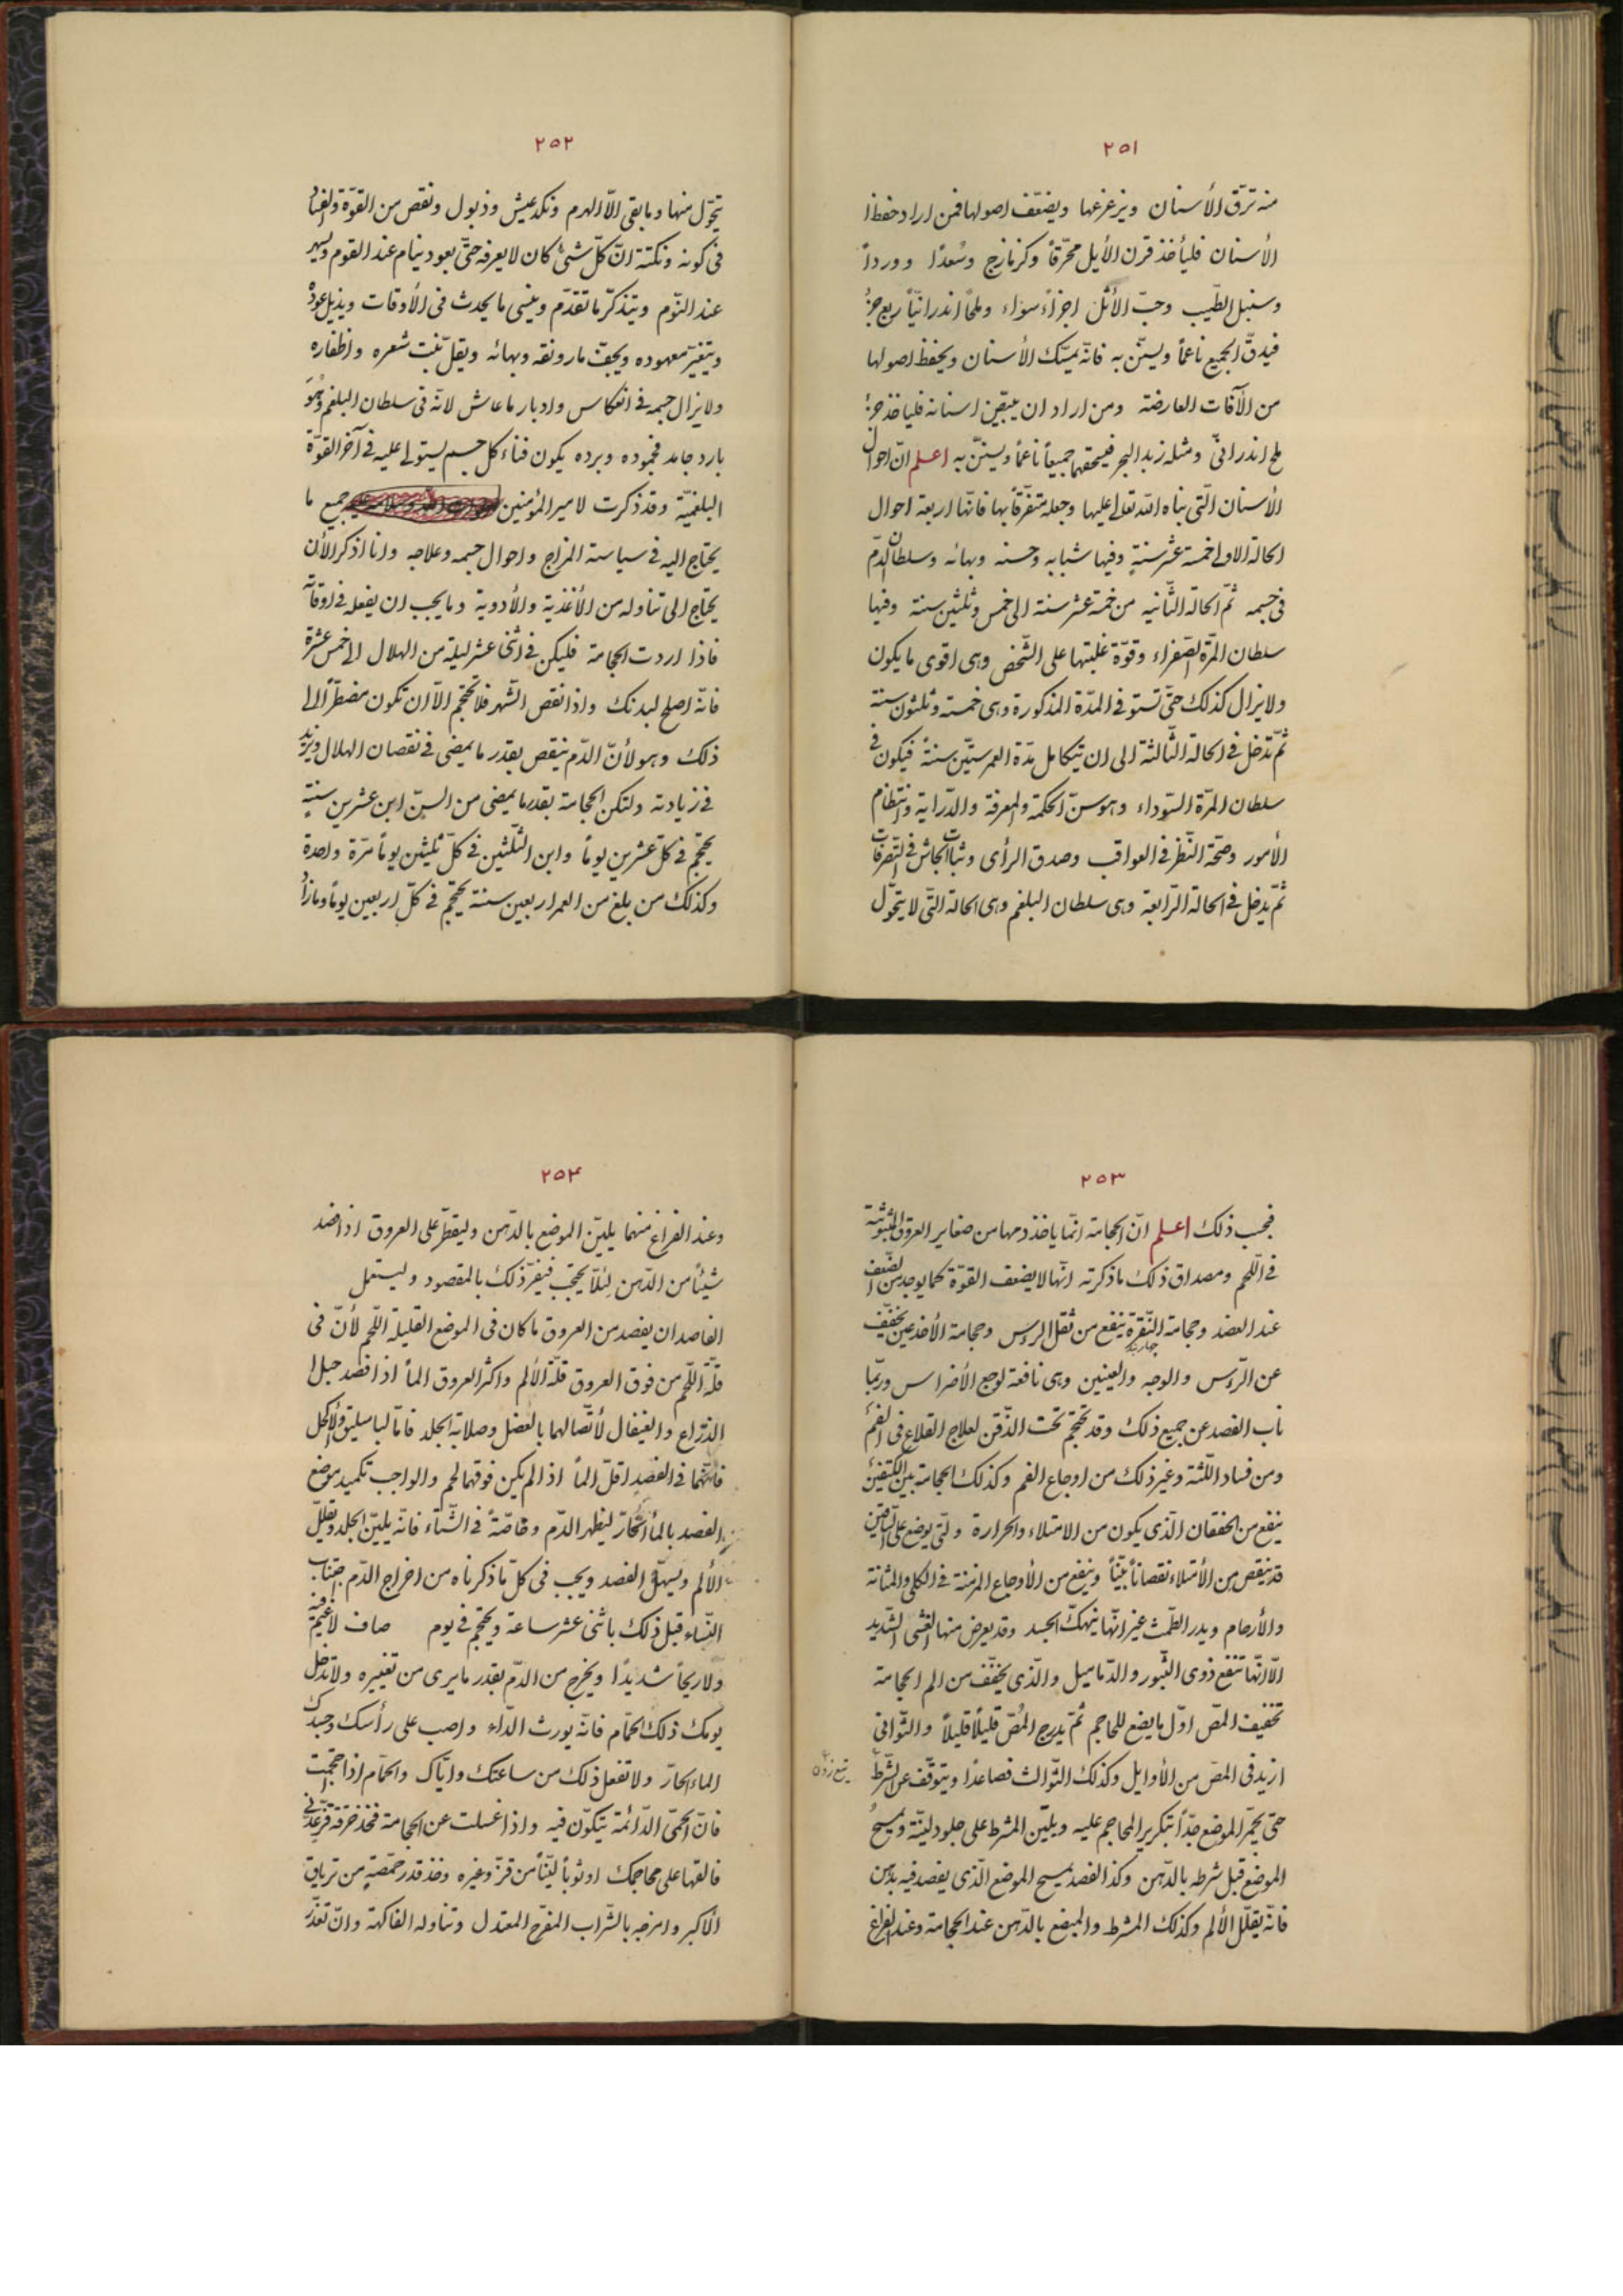 ٢٥١
منه ترّق الأسنان ويزعزعها ويضعّف اصولها فمن اراد حفظ
الأسنان فليأخذ قرن الأيل محرّقاً وكزمازج وسُعدًا ووردًا
وسنبل الطّيب وحبّ الأثل اجزاء سواء وملحًا اندرانيّاً ربع جزء
فيدقّ الجميع ناعماً ويستنّ به فانّه يمسّك الأسنان ويحفظ اصولها
من الآفات العارضة ومن اراد ان يبيّض اسنانه فليأخذ جزء
ملح اندرانىّ ومثله زبد البحر فيسحقهما جميعاً ناعماً ويستنّ به اعلم انّ احوال
الأسنان الّتى بناه اللّه تعالى عليها وجعله متفرّقاً بها فانّها اربعة احوال
الحالة الاولى خمسة عشر سنةٍ وفيها شبابه وحسنه وبهائه وسلطان الدّم
فى جسمه ثمّ الحالة الثّانيه من خمسة عشر سنة الى خمس وثلثين سنة وفيها
سلطان المرّة الصّفراء وقوّة غلبتها على الشّخص وهى اقوى ما يكون
ولا يزال كذلك حتّى تستوفى المدّة المذكورة وهى خمسة وثلثون سنة
ثمّ تدخل فى الحالة الثّالثة الى ان يتكامل مدّة العمر ستّين سنةً فيكون فى
سلطان المرّة السّوداء وهو سنّ الحكمة والمعرفة والدّراية وانتظام
الأمور وصحّة النّظر فى العواقب وصدق الرأى وثبات الجاش فى التصرفات
ثمّ يدخل فى الحالة الرّابعة وهى سلطان البلغم وهى الحالة الّتى لا يتحوّل
٢٥٢
يتحوّل منها وما بقى الّا الهرم ونكد عيش وذبول ونقص من القوّة وفساد
فى كونه ونكتة انّ كلّ شئ كان لا يعرفه حتّى يعود ينام عند القوم ويسهر
عند النّوم ويتذكّر ما تقدّم وينسى ما يحدث فى الأوقات ويذبل عوده
ويتغيّر معهوده ويجفّ ماء رونقه وبهائه ويقلّ نبت شعره واظفاره
ولا يزال جسمه فى انعكاس وادبار ما عاش لانّه فى سلطان البلغم وهو
بارد جامد فجموده وبرده يكون فناء كل جسم يستولى عليه فى آخر القوّة
البلغميّة وقد ذكرت لامير المؤمنين جميع ما
يحتاج اليه فى سياسة المزاج واحوال جسمه وعلاجه وانا اذكر الأن
يحتاج الى تناوله من الأغذية والأدوية وما يجب ان يفعله فى اوقاته
فاذا اردت الحجامة فليكن فى اثنى عشر ليلة من الهلال الى خمس عشرة
فانّه اصلح لبدنك واذا نقص الشّهر فلا تحتجم الّا ان تكون مضطرّاً الى
ذلك وهو لأنّ الدّم ينقص بقدر ما يمضى فى نقصان الهلال ويزيد
فى زيادته ولتكن الحجامة بقدر ما يمضى من السنّ ابن عشرين سنةٍ
يحتجم فى كلّ عشرين يوماً وابن الثّلثين فى كلّ ثلثين يوماً مرّة واحدة
وكذلك من بلغ من العمر اربعين سنة يحتجم فى كلّ اربعين يوماً وما زاد
٢٥٣
فبحسب ذلك اعلم انّ الحجامة انّما يأخذ دمها من صغاير العروق المبثوثة
فى اللّحم ومصداق ذلك ما ذكرته انّها لا يضعف القوّة كما يوجد من الضّعف
عند الفصد وحجامة النّقره ينفع من ثقل الرؤس وحجامة الأخدعين يخفّف
عن الرّؤس والوجه والعينين وهى نافعة لوجع الأضراس وربّما
ناب الفصد عن جميع ذلك وقد تحتجم تحت الذّقن لعلاج القلاع فى الفم
ومن فساد اللّثة وغير ذلك من اوجاع الفم وكذلك الحجامة بين الكتفين
ينفع من الخفقان الّذى يكون من الامتلاء والحرارة والّتى يوضع على السّاقين
قد ينقص من الأمتلاء نقصاناً بيّناً وينفع من الأوجاع المزمنة فى الكلى والمثانة
والأرحام ويدر الطّمث غير انّها ينهك الجسد وقد يعرض منها الغشى الشّديد
الّا انّها تنفع ذوى البثور والدّماميل والّذى يخفّف من الم الحجامة
تخفيف المصّ اوّل ما يضع المحاجم ثمّ يدرج المُصّ قليلًا قليلًا والثّوانى
ازيد فى المصّ من الأوايل وكذلك الثّوالث فصاعدًا ويتوقّف عن الشّرط
حتى يحمرّ الموضع جدّاً بتكرير المحاجم عليه ويليّن المشرط على جلود ليّنة ويمسح
الموضع قبل شرطه بالدّهن وكذا الفصد يمسح الموضع الّذى يفصد فيه بدهن
فانّه يقلّل الألم وكذلك المشرط والمبضع بالدّهن عند الحجامة وعند الفراغ
٢٥٤
وعند الفراغ منهما يليّن الموضع بالدّهن وليقطّر على العروق اذا فصد
شيئاً من الدّهن لئلّا يحتجب فيضرّ ذلك بالمقصود وليستعمل
الفاصد ان يفصد من العروق ما كان فى الموضع القليلة اللّحم لأنّ فى
قلّة اللّحم من فوق العروق قلّة الألم واكثر العروق الماً اذا فصد حبل ا
الذّراع والقيفال لأتّصالهما بالعضل وصلابة الجلد فامّا الباسليق والأكحل
فانّهما فى الفصد اقلّ الماً اذا لم يكن فوقهما لحم والواجب تكميد موضع
الفصد بالماء الحارّ ليظهر الدّم وخاصّةً فى الشّتاء فانّه يليّن الجلد ويقلّل
الألم ويسهّل الفصد ويجب فى كلّ ما ذكرناه من اخراج الدّم اجتناب
النّساء قبل ذلك باثنى عشر ساعة ويحتجم فى يوم صاف لا غيم فيه
ولا ريحاً شديدًا ويخرج من الدّم بقدر ما يرى من تغييره ولا تدخل
يومك ذلك الحمّام فانّه يورث الدّاء واصب على رأسك وجسدك
الماء الحارّ ولا تفعل ذلك من ساعتك وايّاك والحمّام اذا احتجمت
فانّ الحمّى الدّائمة يتكوّن فيه واذا اغسلت عن الحجامة فخذ خرقة
فالقها على محاجمك او ثوباً ليّناً من قزّ وغيره وخذ قدر حمّصةٍ من ترياق
الأكبر وامزجه بالشّراب المفرّح المعتدل وتناوله الفاكهة وان تعذّر